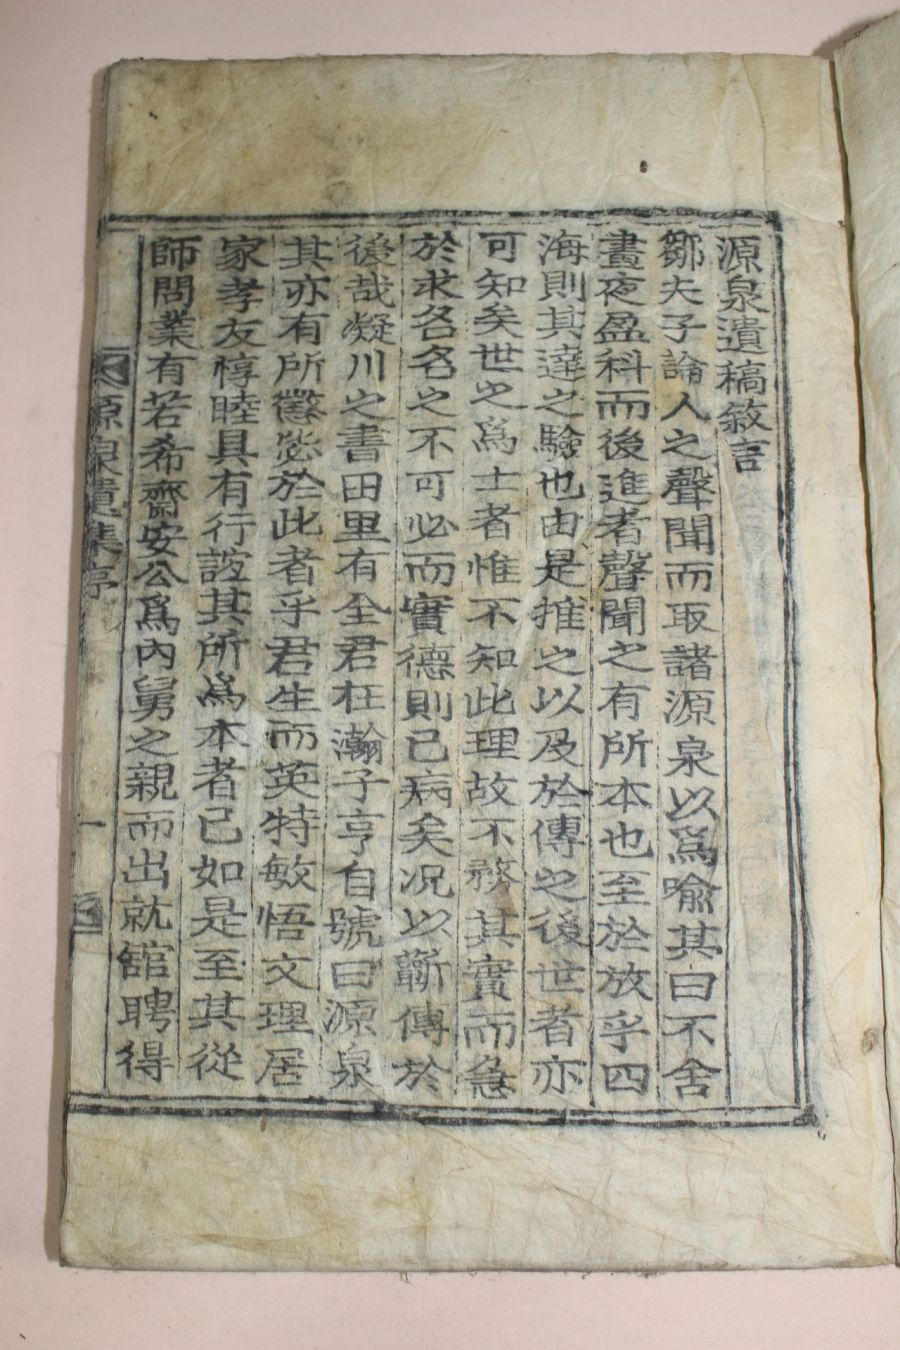 源泉遺稿敘言
鄒夫子論人之聲聞而取諸源泉以爲喩其曰不舍
晝夜盈科而後進者聲聞之有所本也至於放乎四
海則其達之驗也由是推之以及於傳之後世者亦
可知矣世之爲士者惟不知此理故不務其實而急
於求名名之不可必而實德則已病矣况以蘄傳於
後哉凝川之書田里有全君枉瀚子亨自號曰源泉
其亦有所懲毖於此者乎君生而英特敏悟文理居
家孝友惇睦具有行誼其所爲本者已如是至其從
師問業有若希齋安公爲內舅之親而出就館聘得
源泉遺集序
一